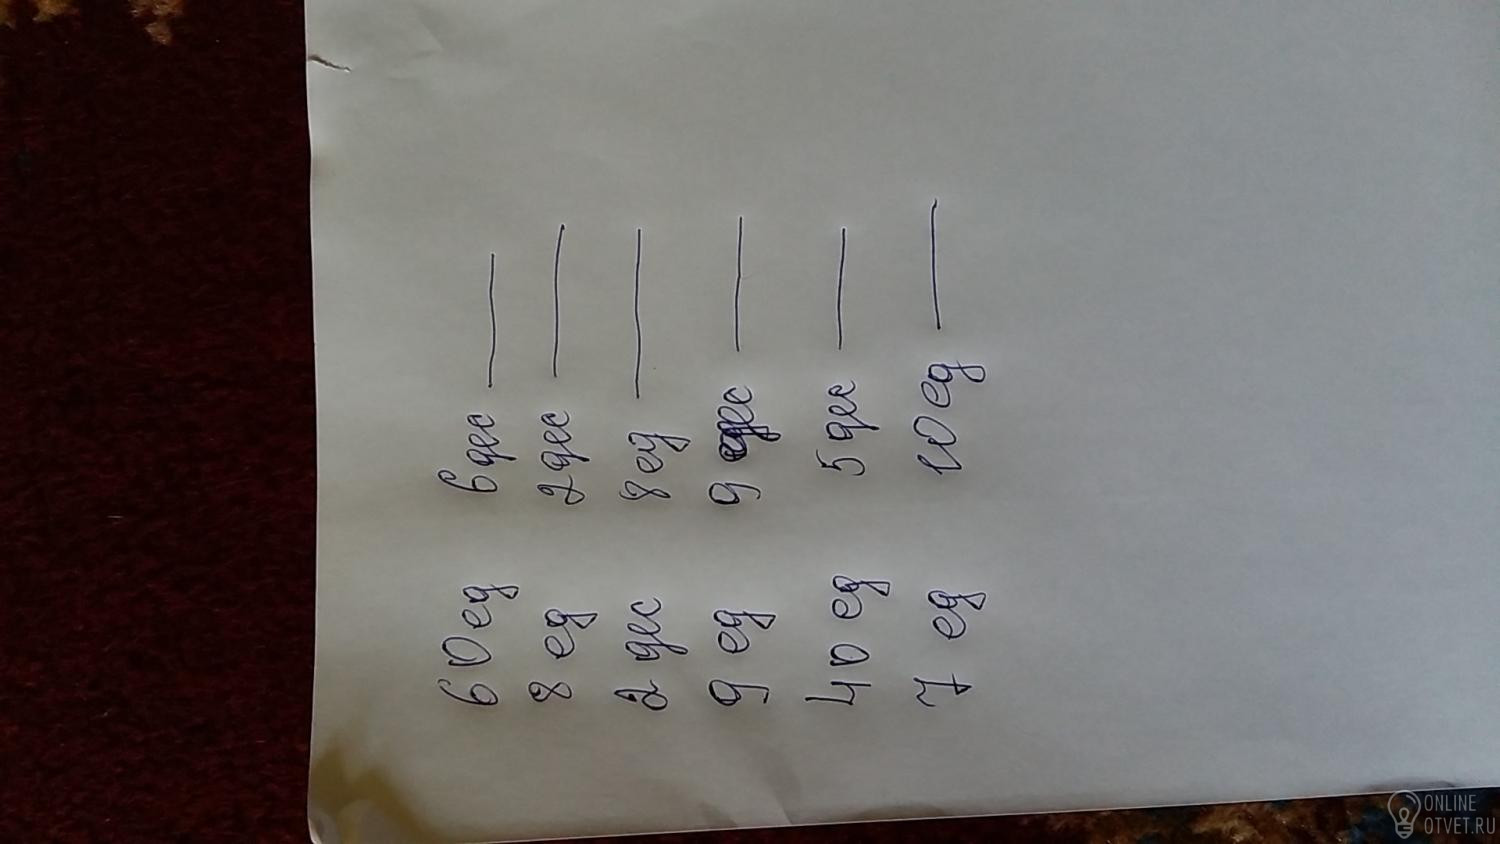 60 ед 6 дес
8 ед 2 дес
2 дес 8 ед
9 ед 9 дес
40 ед 5 дес
7 ед 10 ед
ONLINE
OTVET.RU